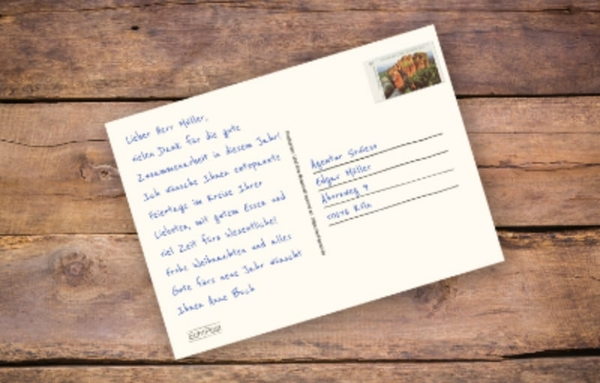 Lieber Herr Müller,
vielen Dank für die gute
Zusammenarbeit in diesem Jahr!
Ich wünsche Ihnen entspannte
Feiertage im Kreise Ihrer
Liebsten, mit gutem Essen und
viel Zeit fürs Wesentliche!
Frohe Weihnachten und alles
Gute fürs neue Jahr wünscht
Ihnen Anne Buch
Agentur
Edgar Müller
Ahornweg 9
Köln